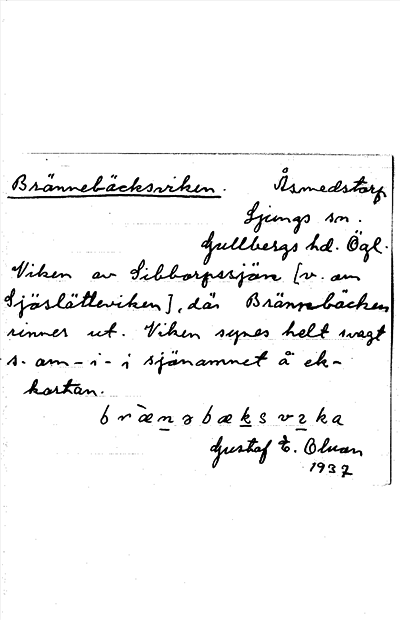 Brännebäcksviken. Åsmedstorp
Ljungs sn.
Gullbergs hd. Ögl.
Viken av Sibborpssjön [v. om
Sjöslätteviken], där Brännebäcken
rinner ut. Viken synes helt svagt
s. om -i- i sjönamnet å ek-
kartan.
brænəbæksvika
Gustaf E. Olsson
1937